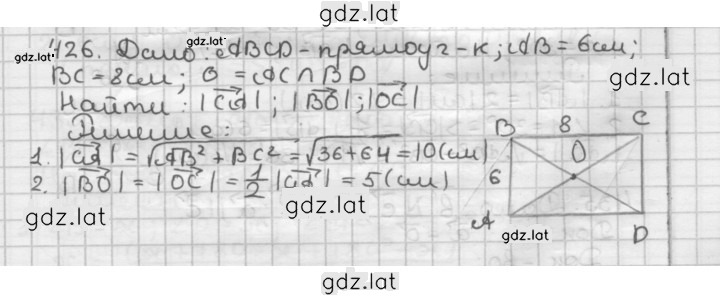 gdz.lat
gdz.lat 426. Дано: gdz.lat ABCD - прямоуг-к; AB = 6см;
BC = 8см; O = AC ∩ BD gdz.lat
Найти: |CA|; |BO|; |OC|
Решение:
1. |CA| = √AB² + BC² = √36+64 = 10(см)
2. |BO| = |OC| = 1/2 |CA| = 5(см)
B 8 C
O
6
A D
gdz.lat gdz.lat gdz.lat
gdz.lat